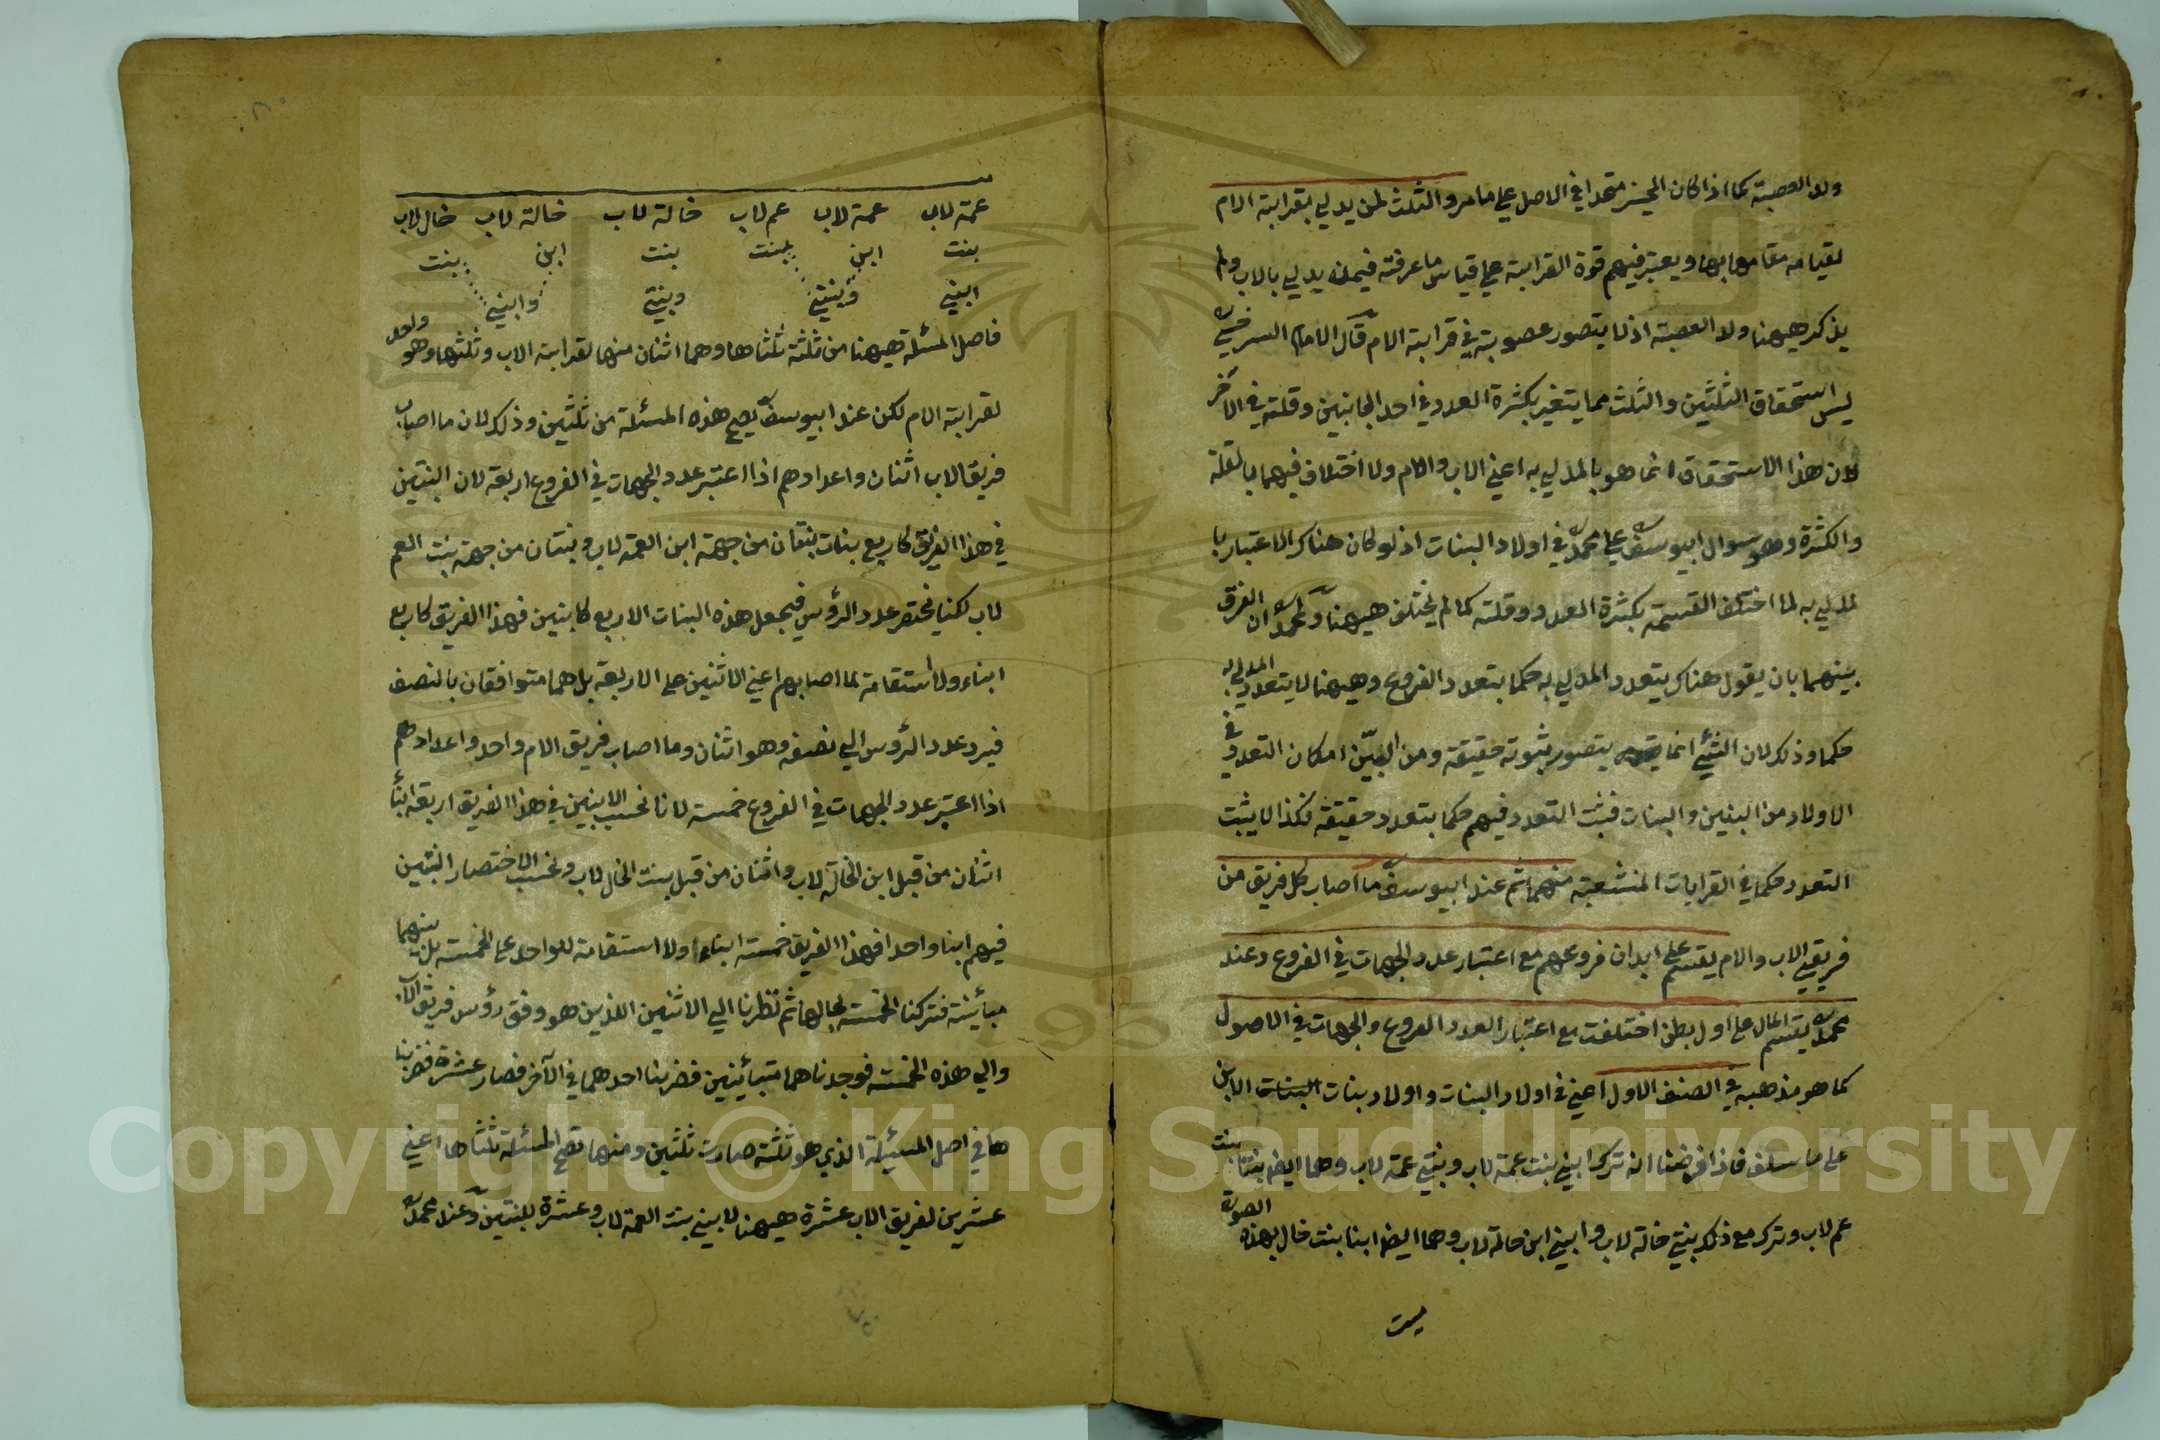 ولد العصبة كما اذا كان الحيز متحدا في الاصل علي ما مر والثلث لمن يدلي بقرابة الام
لقيامه مقامها ويعتبر فيهم قوة القرابة علي قياس ما عرفته فيمن يدلي بالاب ولم
يذكر هيهنا ولد العصبة اذ لا يتصور عصوبة في قرابة الام قال الامام السرخسي
ليس استحقاق الثلثين والثلث مما يتغير بكثرة العدد في احد الجانبين وقلته في الآخر
لان هذا الاستحقاق انما هو بالمدلي به اعني الاب والام ولا اختلاف فيهما بالقلة
والكثرة وهو سوال ابيوسف علي محمد في اولاد البنات اذ لو كان هناك الاعتبار با
لمدلي به لما اختلف القسمة بكثرة العدد وقلته كما لم يختلف هيهنا ولمحمد ان الفرق
بينهما بان يقول هناك يتعدد المدلي به حكما بتعدد الفروع وهيهنا لا يتعدد المدلي به
حكما وذلك لان الشئ انما يتصور ثبوته حقيقة ومن البين امكان التعدد في
الاولاد من البنين والبنات فيثبت التعدد فيهم حكما بتعدد حقيقة فكذا لا يثبت
التعدد حكما في القرابات المنشعبة منهما ثم عند ابيوسف ما اصاب كل فريق من
فريقي الاب والام يقسم علي ابدان فروعهم مع اعتبار عدد الجهات في الفروع وعند
محمد يقسم المال علي اول بطن اختلفت مع اعتبار العدد الفروع والجهات في الاصول
كما هو مذهبه في الصنف الاول اعني في اولاد البنات و اولاد بنات البنات الابن
علي ما سلف فاذا فرضنا انه ترك ابني بنت عمة لاب وبنتي عمة لاب وهما ايضا بنتا بنت
عم لاب وترك مع ذلك بنتي خالة لاب وابني ابن خالة لاب وهما ايضا ابنا بنت خال بهذه الصورة
ميت
عمة لاب عمة لاب عم لاب خالة لاب خالة لاب خال لاب
بنت ابن بنت بنت ابن بنت
ابني وبنتي وبنتي وابني
فاصل المسئلة هيهنا من ثلثة ثلثاها وهما اثنان منها لقرابة الاب وثلثها وهو واحد
لقرابة الام لكن عند ابيوسف يصح هذه المسئلة من ثلثين وذلك لان ما اصاب
فريق الاب اثنان واعدادهم اذا اعتبر عدد الجهات في الفروع اربعة لان البنتين
في هذا الفريق كاربع بنات بنتان من جهة ابن العمة لاب وبنتان من جهة بنت العم
لاب لكنا نختصر عدد الرؤس فيجعل هذه البنات الاربع كابنين فهذا الفريق كاربع
ابناء ولا استقامة لما اصابهم اعني الاثنين علي الاربعة بل هما متوافقان بالنصف
فيرد عدد الرؤس الي نصفه وهو اثنان وما اصاب فريق الام واحد واعدادهم
اذا اعتبر عدد الجهات في الفروع خمسة لانا نحسب الابنين في هذا الفريق اربعة ابنا
اثنان من قبل ابن الخالة لاب واثنان من قبل بنت الخال لاب ونحسب الاختصار البنتين
فيهم ابنا واحدا فهذا الفريق خمسة ابناء ولا استقامة للواحد علي الخمسة بل بينهما
مبائينة فتركنا الخمسة بحالها ثم نظرنا الي الاثنين الذين هو وفق رؤس فريق الاب
والي هذه الخمسة فوجدناهما متبائينين فضربنا احدهما في الآخر فصار عشرة فضربنا
ها في اصل المسئيلة الذي هو ثلثة صارت ثلثين ومنها تصح المسئلة ثلثاها اعني
عشرين لفريق الاب عشرة هيهنا لابني بنت العمة لاب وعشرة للبنتين وعند محمد